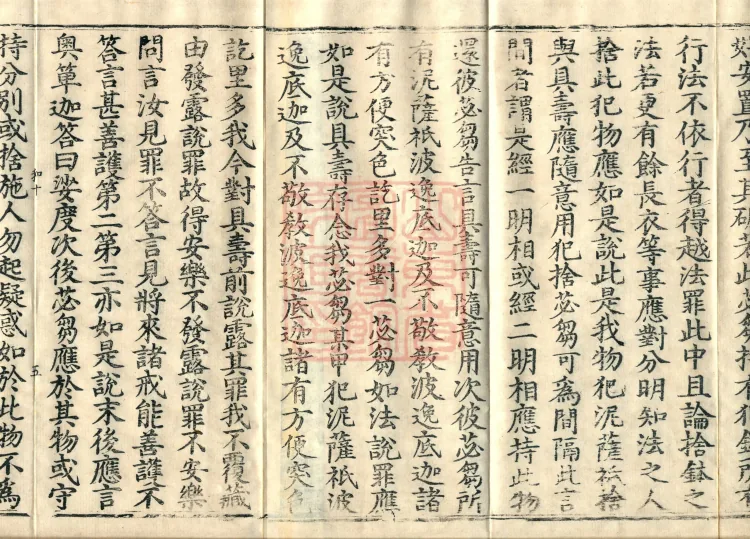 好安置不至其破若此苾芻
行法不依行者得越法罪此中且論捨鉢之
法若更有餘長衣等事應對分明知法之人
捨此犯物應如是說此是我物犯泥薩祇捨
與具壽應隨意用犯捨苾芻可為間隔此言
間者謂是經一明相或經二明相應持此物
還彼苾芻告言具壽可隨意用次彼苾芻所
有泥薩祇波逸底迦及不敬教波逸底迦諸
有方便突色訖里多對一苾芻如法說罪應
如是說具壽存念我苾芻某甲犯泥薩祇波
逸底迦及不敬教波逸底迦諸有方便突色
訖里多我今對具壽前說露其罪我不覆藏
由發露說罪故得安樂不發露說罪不安樂
問言汝見罪不答言見將來諸戒能善護不
答言甚善護第二第三亦如是說末後應言
奧箄迦答曰娑度次後苾芻應於其物或守
和十 五
持分別或捨施人勿起疑惑如於此物不為